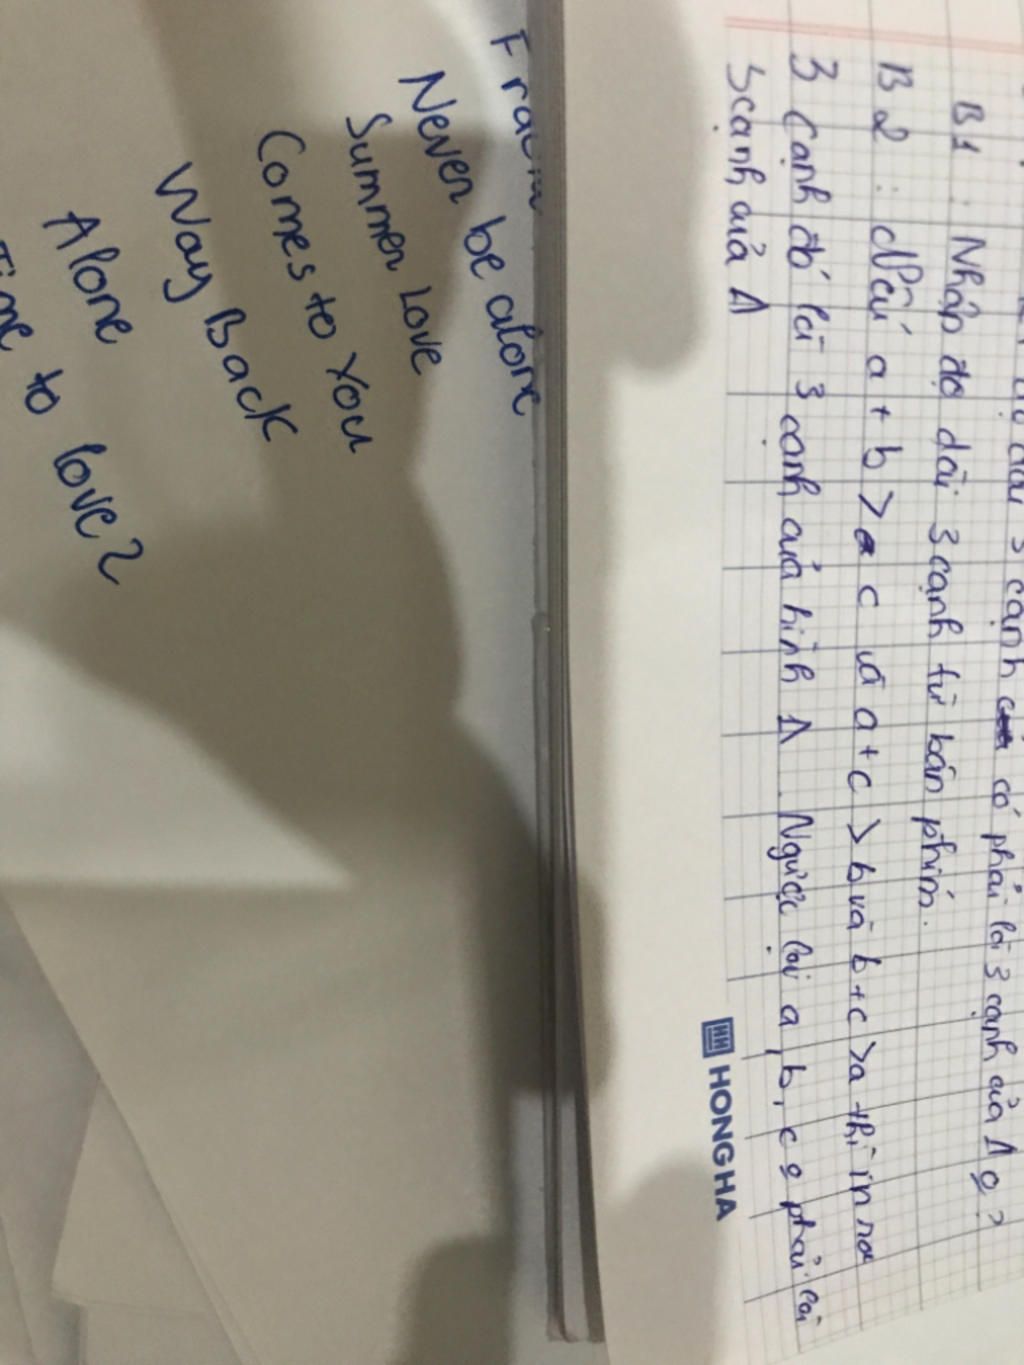 3 cạnh có phải là 3 cạnh của Δ o?
B1 : Nhập độ dài 3 cạnh từ bàn phím.
B2 : Nếu a + b > c và a + c > b và b + c > a thì in ra
3 cạnh đó là 3 cạnh của hình Δ. Ngược lại a, b, c o phải là
3 cạnh của Δ
HH HONG HA
Never be alone
Summer Love
Comes to You
Way Back
Alone
Time to love?